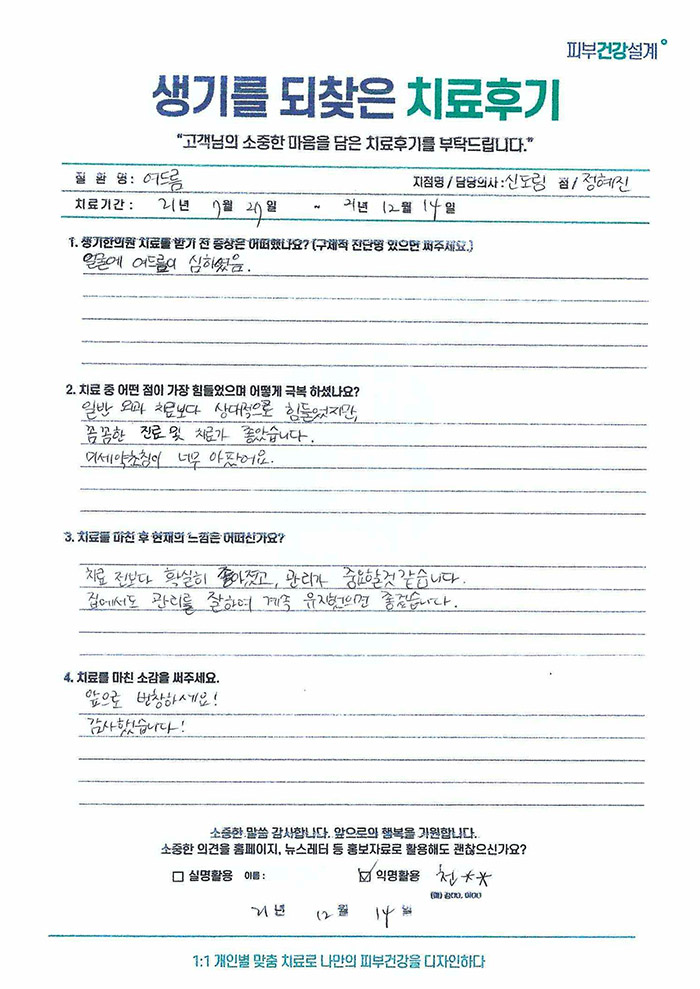 피부건강설계
생기를 되찾은 치료후기
"고객님의 소중한 마음을 담은 치료후기를 부탁드립니다."
질 환 명 : 여드름 지점명 / 담당의사 : 신도림 점 / 정혜진
치료기간 : 21년 7월 27일 ~ 21년 12월 14일
1. 생기한의원 치료를 받기 전 증상은 어떠했나요? (구체적 진단명 있으면 써주세요.)
얼굴에 여드름이 심하였음.
2. 치료 중 어떤 점이 가장 힘들었으며 어떻게 극복 하셨나요?
일반 외과 치료보다 상대적으로 힘들었지만,
꼼꼼한 진료 및 치료가 좋았습니다.
미세약초침이 너무 아팠어요.
3. 치료를 마친 후 현재의 느낌은 어떠신가요?
치료 전보다 확실히 좋아졌고, 관리가 중요할것 같습니다.
집에서도 관리를 잘하여 계속 좋겠습니다.
4. 치료를 마친 소감을 써주세요.
앞으로 번창하세요!
감사했습니다!
소중한 말씀 감사합니다. 앞으로의 행복을 기원합니다.
소중한 의견을 홈페이지, 뉴스레터 등 홍보자료로 활용해도 괜찮으신가요?
실명활용 이름 : 익명활용 천**
(예) 김00, 이00
21년 12월 14일
1:1 개인별 맞춤 치료로 나만의 피부건강을 디자인하다